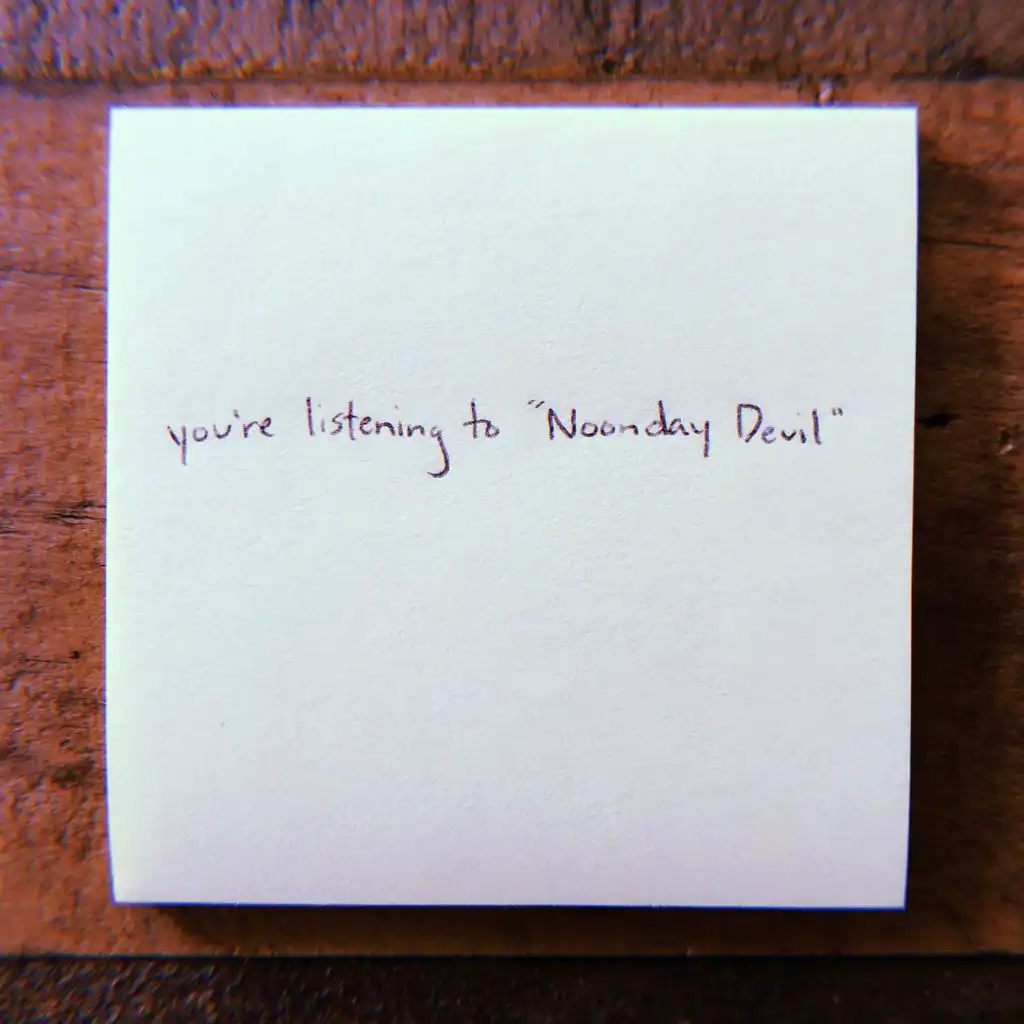 you're listening to "Noonday Devil"